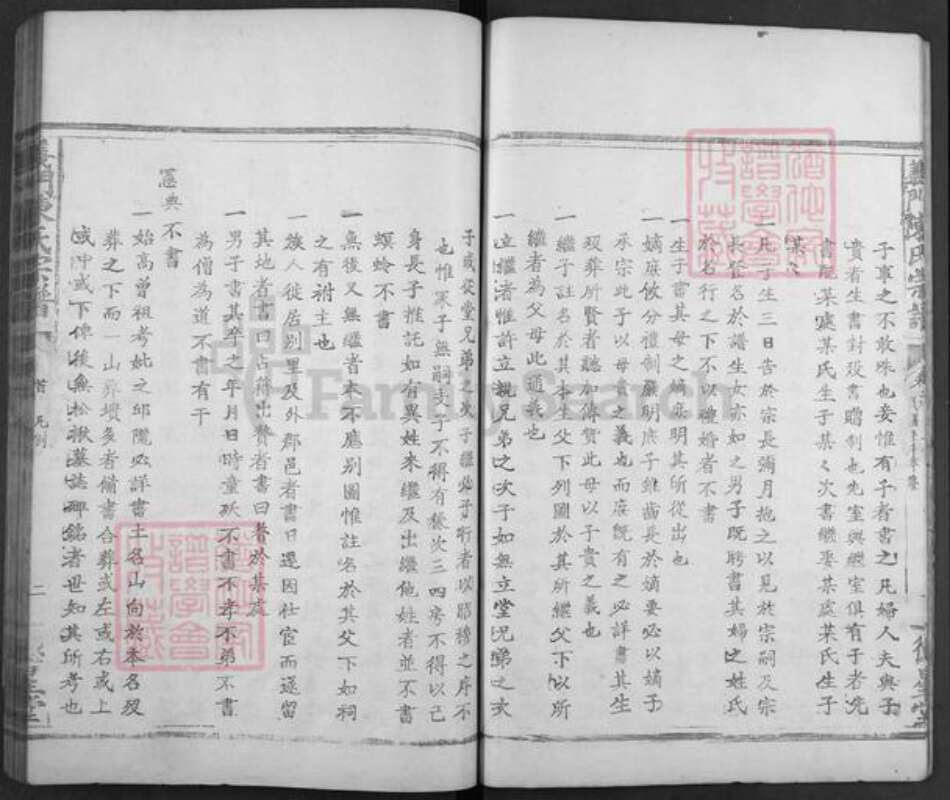 子事之不敢昧也妾惟有子者書之凡婦人夫與子
貴者生書封歿書贈制也先室與繼室俱有子者先
書配某處某氏生子某々次書繼娶某處某氏生子
某々
一凡子生三日告於宗長彌月抱之以見於宗嗣及宗
長登名於譜生女亦如之男子既聘書其婦之姓氏
於名行之下不以禮婚者不書
一生子書其母之嫡庶明其所從出也
一嫡庶攸分禮制嚴明庶子雖齒長於嫡要必以嫡子
承宗此子以母貴之義也而庶既有之必詳書其生
歿葬所賢者聽加傳贊此母以子貴之義也
一繼子註名於其本生父下列圖於其所繼父下以所
繼者為父母此通義也
一立繼者惟許立親兄弟之次子如無立堂兄弟之次
子或從堂兄弟之次子繼必予行者以昭穆之序不
也惟家子無嗣支子不得有後次三四房不得以己
身長子推託如有異姓來繼及出繼他姓者並不書
螟蛉不書
一無後又無繼者本不應別圖惟註名於其父下如祠
之有祔主也
一族人徙居別里及外郡邑者書曰遷因仕宦而遂留
其地者書曰占籍出贅者書曰贅於某處
一男子書其卒之年月日時童殀不書不孝不弟不書
為僧為道不書有干
憲典不書
一始高曾祖考妣之邱隴必詳書土名山向於本名歿
葬之下而一山葬墳多者備書合葬或左或右或上
或中或下俾後無松楸墓誌碑銘者世知其所考也
義門陳氏宗譜
凡例
二